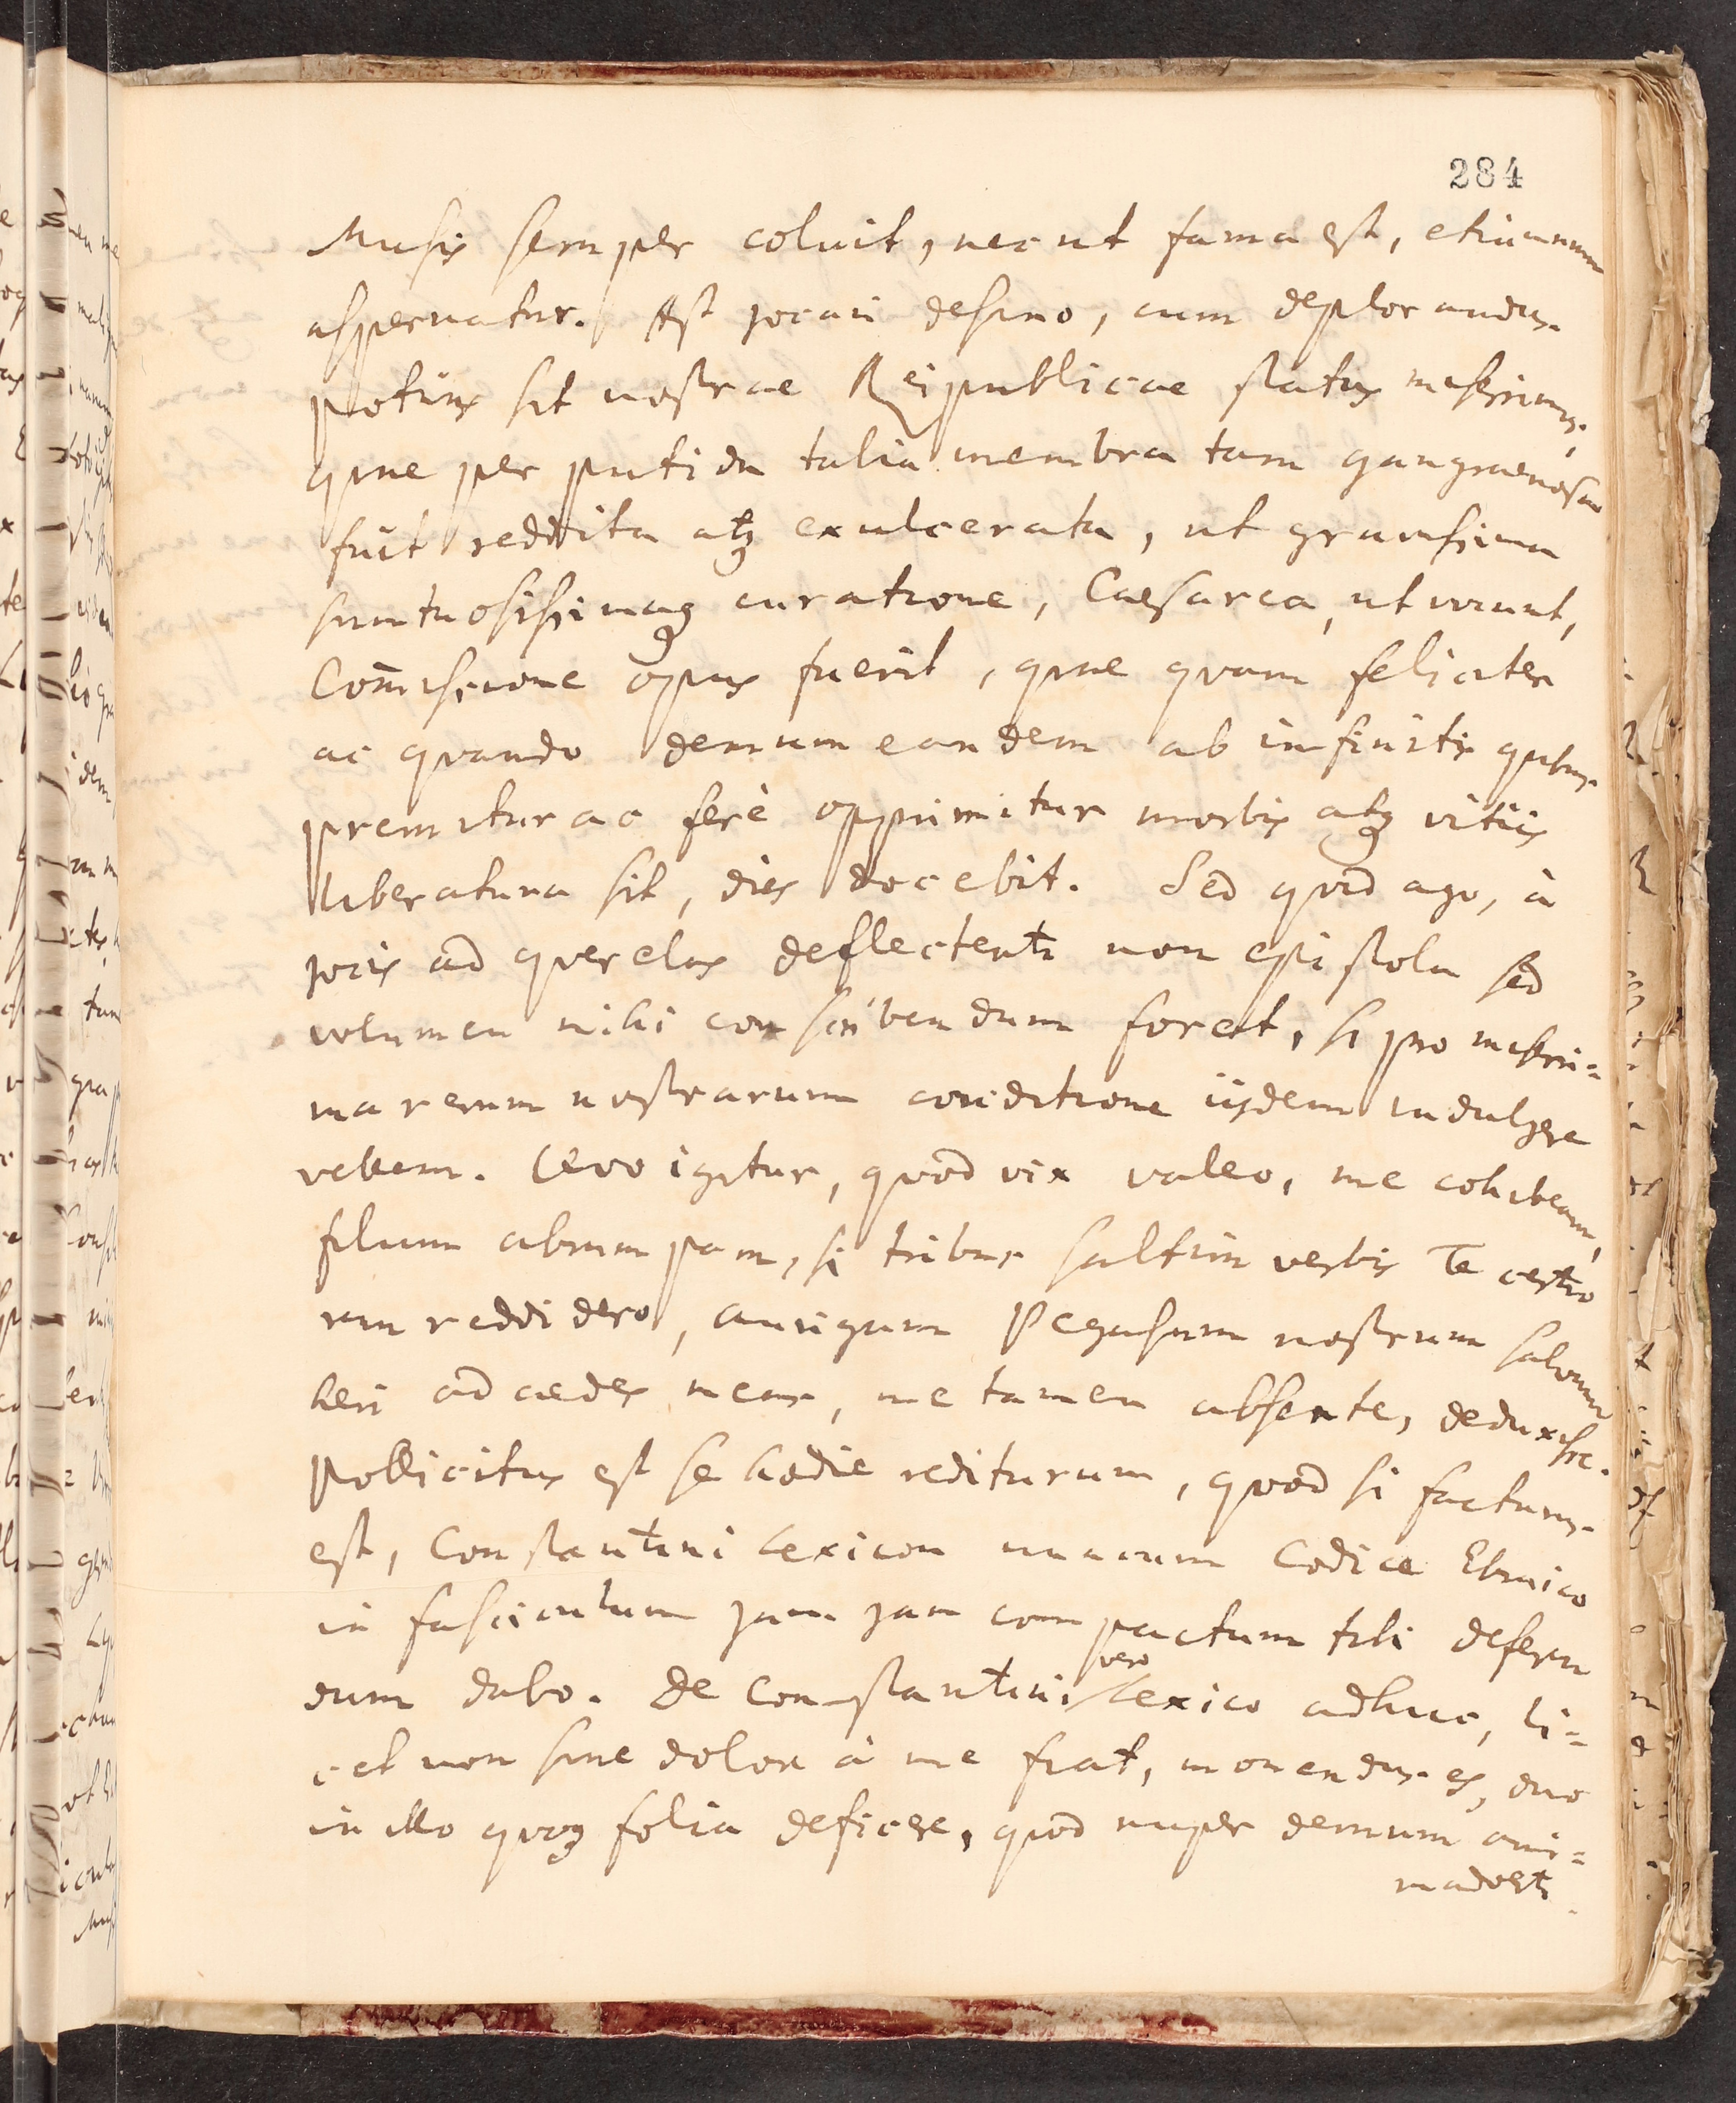 284
Musis semper coluit, nec ut fama est, etiamnum
aspernatur. Ast jocari desino, cum deplorandus
potius sit nostrae Reipublicae status miserrimus,
quae per putida talia membra tam gangraenosa
fuit reddita atq; exulcerata, ut gravissima
sumtuosissimaq; curatione, Caesarea, ut vocant,
Com̄issione opus fuerit, quae quam feliciter
ac quando demum eandem ab infinitis quibus
premitur ac ferè opprimitur morbis atq; vitiis
liberatura sit, dies docebit. Sed quid ago, à
jocis ad querelas deflectenti non epistola sed
volumen mihi conscribendum foret, si pro miserri=
ma rerum nostrarum conditione iisdem indulgere
vellem. Cevo igitur, quod vix valeo, me cohibeam,
filum abrumpam, si tribus saltim verbis Te certio
rem reddidero, aurigam Pegasum nostrum salvum
heri ad aedes meas, me tamen absente, deduxisse.
Pollicitus est se hodie rediturum, quod si facturus
est, Constantini Lexicon unacum Codice Ebraico
in fasciculum jam jam compactum tibi deferen
dum dabo. De Constantini vero Lexico adhuc, li=
cet non sine dolore à me fiat, monendus es, duo
in illo quoq; folia deficere, quod nuper demum ani=
madverti